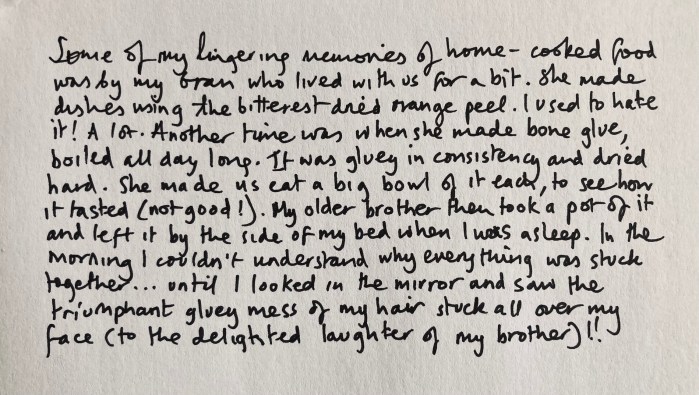 Some of my lingering memories of home-cooked food
was by my Gran who lived with us for a bit. She made
dishes using the bitterest dried orange peel. I used to hate
it! A lot. Another time was when she made bone glue,
boiled all day long. It was gluey in consistency and dried
hard. She made us eat a big bowl of it each, to see how
it tasted (not good!). My older brother then took a pot of it
and left it by the side of my bed when I was asleep. In the
morning I couldn't understand why everything was stuck
together... until I looked in the mirror and saw the
triumphant gluey mess of my hair stuck all over my
face (to the delighted laughter of my brother)!!